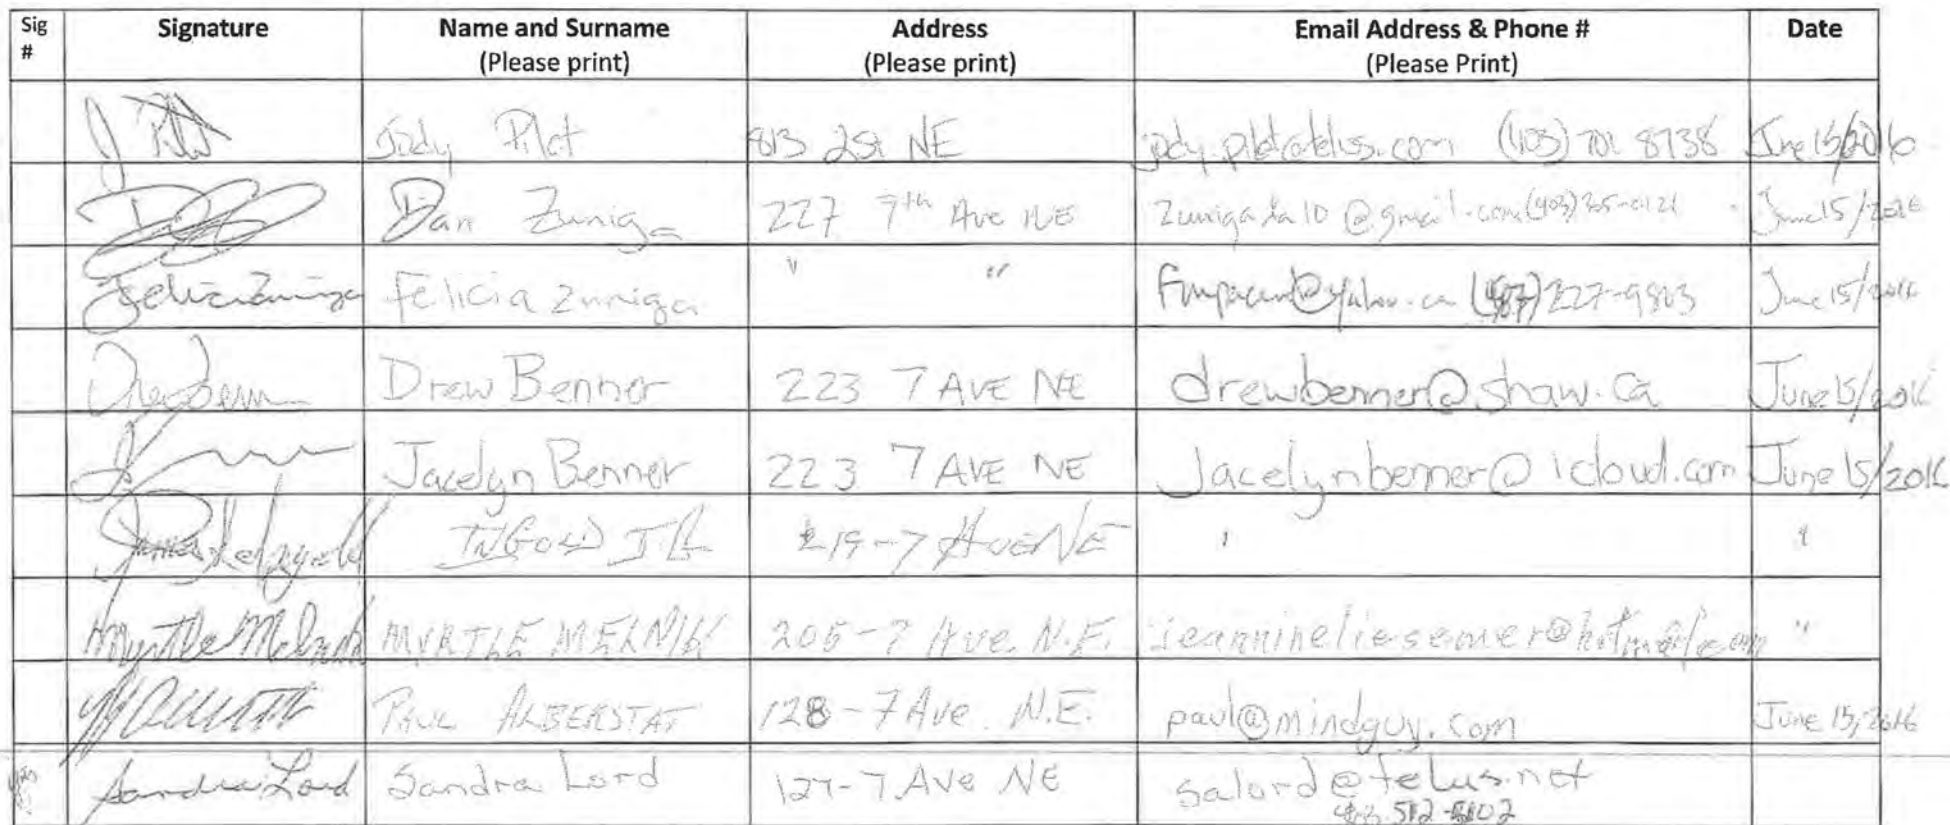 Sig # Signature Name and Surname (Please print) Address (Please print) Email Address & Phone # (Please Print) Date
Jody Pilot 813 2St NE June 15/2016
Dan Zuniga 227 7th Ave NE June 15/2016
Felicia Zuniga " " 227-9803 June 15/2016
Drew Benner 223 7 AVE NE drewbenner@shaw.ca June 15/2016
Jacelyn Benner 223 7 AVE NE Jacelynbenner@icloud.com June 15/2016
INGOLD 219-7 Ave NE " "
Myrtle Melnik MYRTLE MELNIK 205-7 Ave N.E. jeannineliesemer@hotmail.com "
PAUL ALBERSTAT 128-7 Ave. N.E. paul@mindguy.com June 15, 2016
Sandra Lord Sandra Lord 127-7 Ave NE salord@telus.net